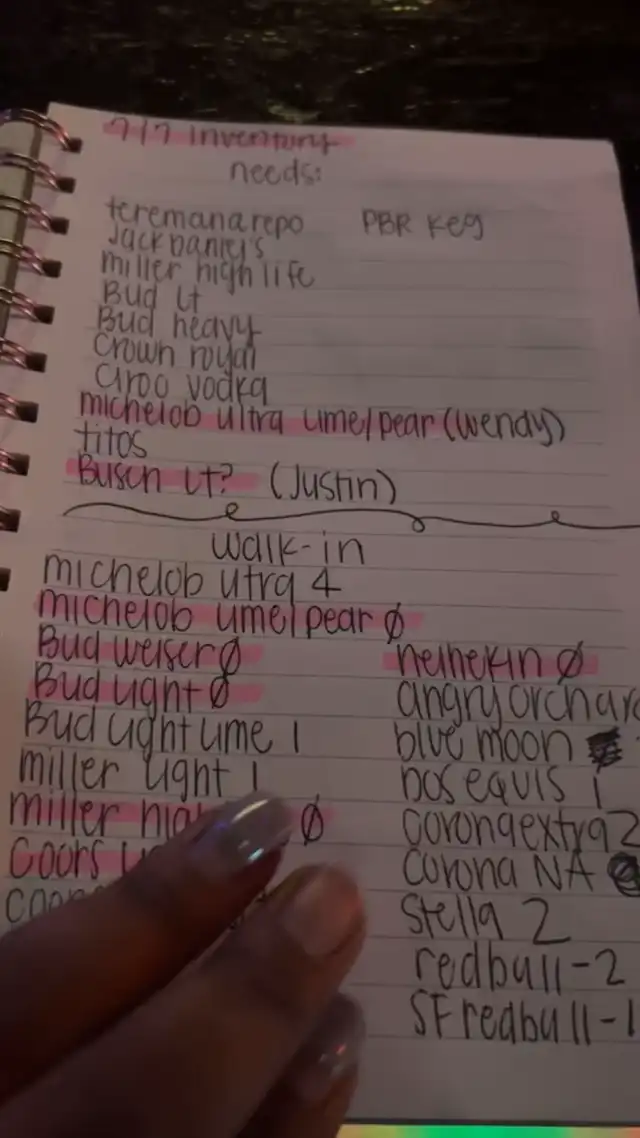 7/7 Inventory
needs:
teremana repo PBR Keg
Jack Daniel's
miller high life
Bud Lt
Bud heavy
Crown royal
Ciroc vodka
michelob ultra lime/pear (wendy)
titos
Busch Lt? (Justin)
walk-in
michelob utra 4
michelob lime/pear Ø
Budweiser Ø
Bud Light Ø
Bud Light Lime 1
miller Light 1
miller high Ø
Coors
heinekin Ø
angry orchar
blue moon
dos equis 1
corona extra 2
corona NA
Stella 2
redbull-2
SF redbull-1